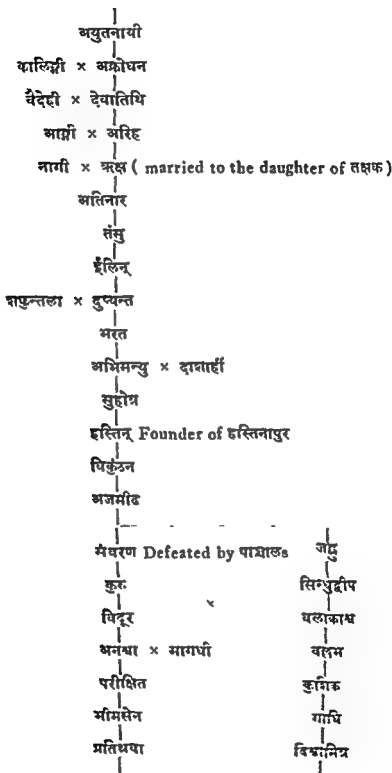 अयुतनायी
कालिङ्गी × अक्रोधन
वैदेही × देवातिथि
आङ्गी × अरिह
नागी × ऋक्ष ( married to the daughter of तक्षक)
अतिनार
तंसु
ईलिन्
शकुन्तला × दुष्यन्त
भरत
अभिमन्यु × दाशार्ही
सुहोत्र
हस्तिन् Founder of हस्तिनापुर
विकुंठन
अजमीढ
संवरण Defeated by पाञ्चालs
कुरु
विदूर
अनश्वा × मागधी
परीक्षित
भीमसेन
प्रतिश्रवा
जह्नु
सिन्धुद्वीप
बलाकाश्व
वल्लभ
कुशिक
गाधि
विश्वामित्र